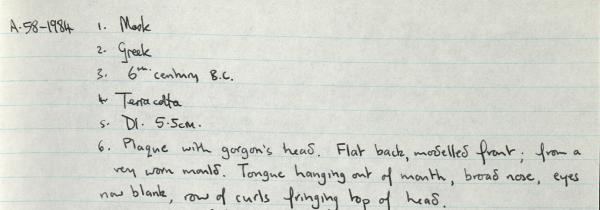 A.58-1984 1. Mask
2. Greek
3. 6th century B.C.
4. Terracotta
5. DI. 5.5cm.
6. Plaque with gorgon's head. Flat back, modelled front; from a
very worn mould. Tongue hanging out of mouth, broad nose, eyes
now blank, row of curls fringing top of head.